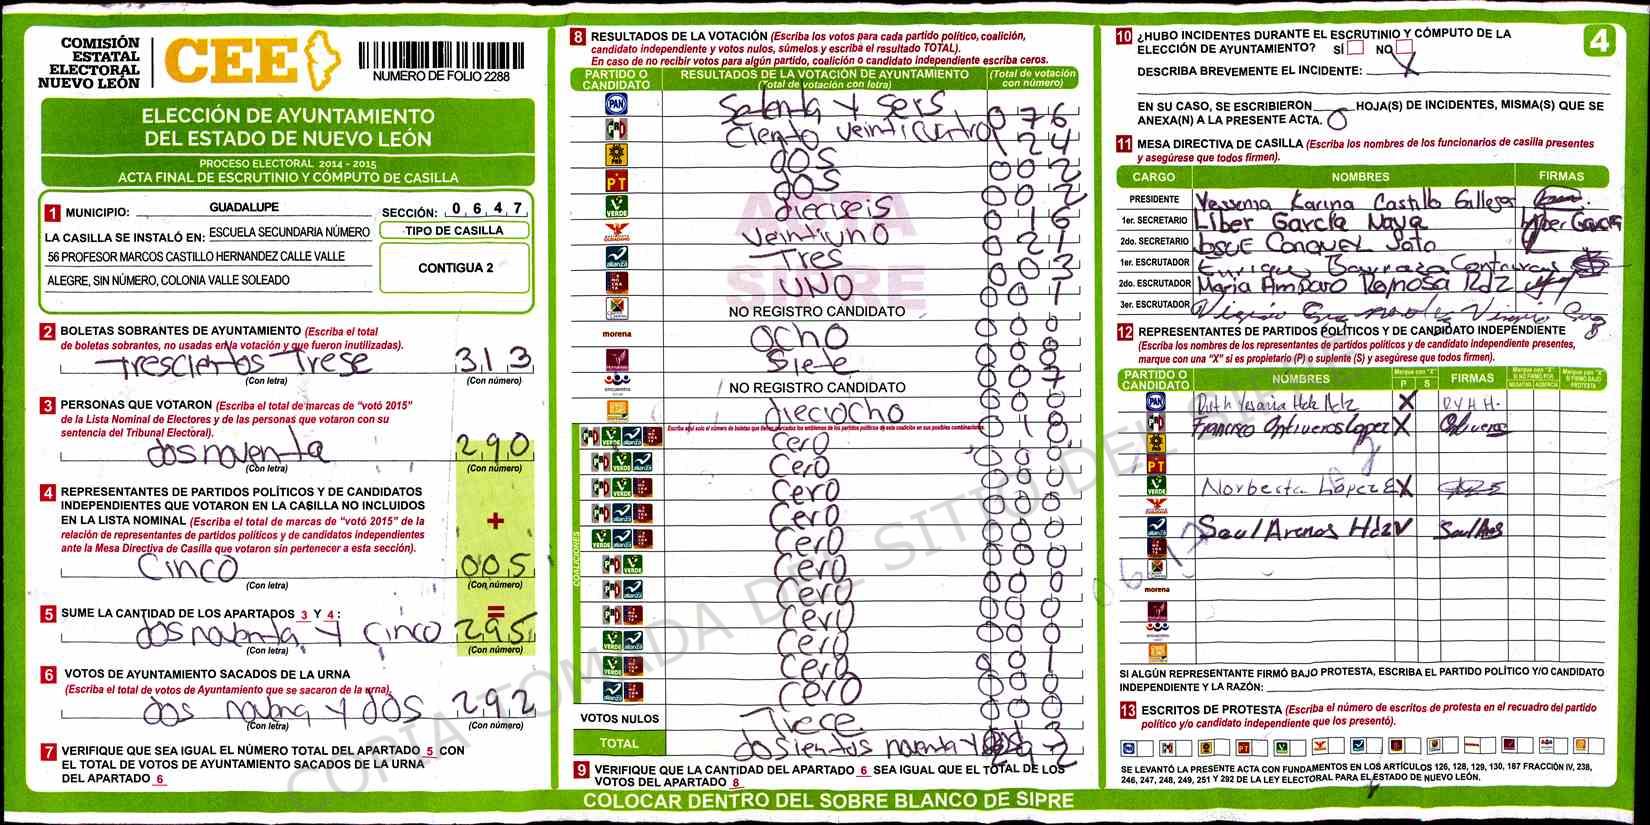 COMISIÓN
ESTATAL
ELECTORAL
NUEVO LEÓN
CEE
NUMERO DE FOLIO 2288
ELECCIÓN DE AYUNTAMIENTO
DEL ESTADO DE NUEVO LEÓN
PROCESO ELECTORAL 2014 - 2015
ACTA FINAL DE ESCRUTINIO Y CÓMPUTO DE CASILLA
1 MUNICIPIO: GUADALUPE SECCIÓN: 0 6 4 7
LA CASILLA SE INSTALÓ EN: ESCUELA SECUNDARIA NÚMERO
56 PROFESOR MARCOS CASTILLO HERNANDEZ CALLE VALLE
ALEGRE, SIN NÚMERO, COLONIA VALLE SOLEADO
TIPO DE CASILLA
CONTIGUA 2
2 BOLETAS SOBRANTES DE AYUNTAMIENTO (Escriba el total
de boletas sobrantes, no usadas en la votación y que fueron inutilizadas).
Trescientos Trese 313
(Con letra) (Con número)
3 PERSONAS QUE VOTARON (Escriba el total de marcas de "votó 2015"
de la Lista Nominal de Electores y de las personas que votaron con su
sentencia del Tribunal Electoral).
dos noventa 290
(Con letra) (Con número)
4 REPRESENTANTES DE PARTIDOS POLÍTICOS Y DE CANDIDATOS
INDEPENDIENTES QUE VOTARON EN LA CASILLA NO INCLUIDOS
EN LA LISTA NOMINAL (Escriba el total de marcas de "votó 2015" de la
relación de representantes de partidos políticos y de candidatos independientes
ante la Mesa Directiva de Casilla que votaron sin pertenecer a esta sección).
+
Cinco 005
(Con letra) (Con número)
=
5 SUME LA CANTIDAD DE LOS APARTADOS 3 Y 4 :
dos noventa y cinco 295
(Con letra) (Con número)
6 VOTOS DE AYUNTAMIENTO SACADOS DE LA URNA
(Escriba el total de votos de Ayuntamiento que se sacaron de la urna).
dos noventa y dos 292
(Con letra) (Con número)
7 VERIFIQUE QUE SEA IGUAL EL NÚMERO TOTAL DEL APARTADO 5 CON
EL TOTAL DE VOTOS DE AYUNTAMIENTO SACADOS DE LA URNA
DEL APARTADO 6
8 RESULTADOS DE LA VOTACIÓN (Escriba los votos para cada partido político, coalición,
candidato independiente y votos nulos, súmelos y escriba el resultado TOTAL).
En caso de no recibir votos para algún partido, coalición o candidato independiente escriba ceros.
PARTIDO O CANDIDATO
RESULTADOS DE LA VOTACIÓN DE AYUNTAMIENTO
(Total de votación con letra)
(Total de votación con número)
PAN setenta y seis 076
Ciento veinticuatro 124
PRD dos 002
PT dos 002
VERDE dieciseis 016
veintiuno 021
alianza Tres 003
UNO 001
NO REGISTRO CANDIDATO 000
morena ocho
Siete 007
NO REGISTRO CANDIDATO
dieciocho 018
COALICIONES
Cero 000
Cero 000
Cero 000
Cero 000
Cero 000
Cero 000
Cero 000
Cero 000
Cero
Cero 001
Cero 000
VOTOS NULOS Trece
TOTAL dosientos noventa y 292
ACTA
SIPRE
9 VERIFIQUE QUE LA CANTIDAD DEL APARTADO 6 SEA IGUAL QUE EL TOTAL DE LOS
VOTOS DEL APARTADO 8
COLOCAR DENTRO DEL SOBRE BLANCO DE SIPRE
COPIA TOMADA DEL SITIO DEL SIPRE
10 ¿HUBO INCIDENTES DURANTE EL ESCRUTINIO Y CÓMPUTO DE LA
ELECCIÓN DE AYUNTAMIENTO? SÍ NO X
4
DESCRIBA BREVEMENTE EL INCIDENTE:
EN SU CASO, SE ESCRIBIERON HOJA(S) DE INCIDENTES, MISMA(S) QUE SE
ANEXA(N) A LA PRESENTE ACTA. 0
11 MESA DIRECTIVA DE CASILLA (Escriba los nombres de los funcionarios de casilla presentes
y asegúrese que todos firmen).
CARGO NOMBRES FIRMAS
PRESIDENTE Yessenia Karina Castillo Gallegos
1er. SECRETARIO Liber García Naya Liber García
2do. SECRETARIO Josue Coronel Soto
1er. ESCRUTADOR Enrique Barraza Contreras
2do. ESCRUTADOR Maria Amparo Reynosa Rdz
3er. ESCRUTADOR
12 REPRESENTANTES DE PARTIDOS POLÍTICOS Y DE CANDIDATO INDEPENDIENTE
(Escriba los nombres de los representantes de partidos políticos y de candidato independiente presentes,
marque con una "X" si es propietario (P) o suplente (S) y asegúrese que todos firmen).
PARTIDO O CANDIDATO NOMBRES Marque con "X" P S FIRMAS Marque con "X" SI NO FIRMÓ POR NEGATIVA AUSENCIA Marque con "X" SI FIRMÓ BAJO PROTESTA
PAN Ruth Yesenia Hdz Hdz X R.Y.H.H.
Francisco Ontiveros Lopez X Ontiveros
PRD
PT
VERDE Norberta López E X
alianza Saul Arenas Hdz Saul Ans
0647
morena
SI ALGÚN REPRESENTANTE FIRMÓ BAJO PROTESTA, ESCRIBA EL PARTIDO POLÍTICO Y/O CANDIDATO
INDEPENDIENTE Y LA RAZÓN:
13 ESCRITOS DE PROTESTA (Escriba el número de escritos de protesta en el recuadro del partido
político y/o candidato independiente que los presentó).
SE LEVANTÓ LA PRESENTE ACTA CON FUNDAMENTOS EN LOS ARTÍCULOS 126, 128, 129, 130, 187 FRACCIÓN IV, 238,
246, 247, 248, 249, 251 Y 292 DE LA LEY ELECTORAL PARA EL ESTADO DE NUEVO LEÓN.